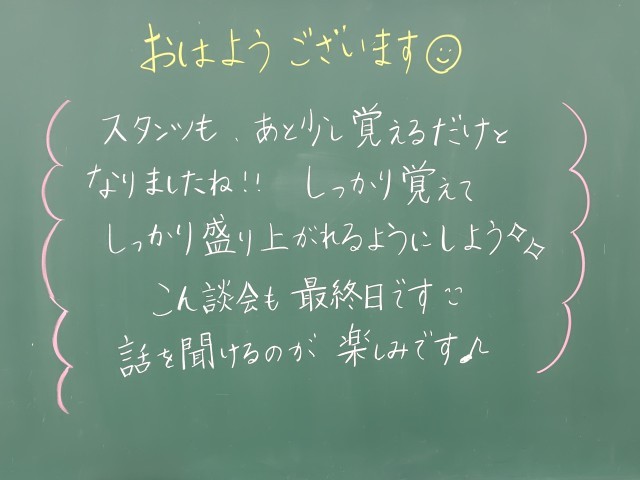 おはようございます☺
スタンツも、あと少し覚えるだけと
なりましたね!! しっかり覚えて
しっかり盛り上がれるようにしよう✧✧
こん談会も最終日です
話を聞けるのが楽しみです♪